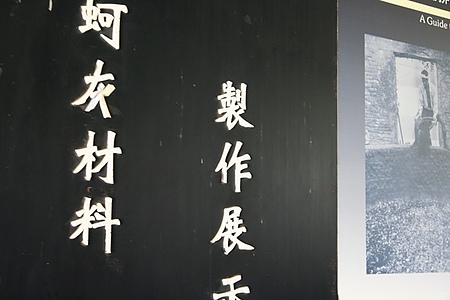 蚵灰材料
製作展示
A Guide